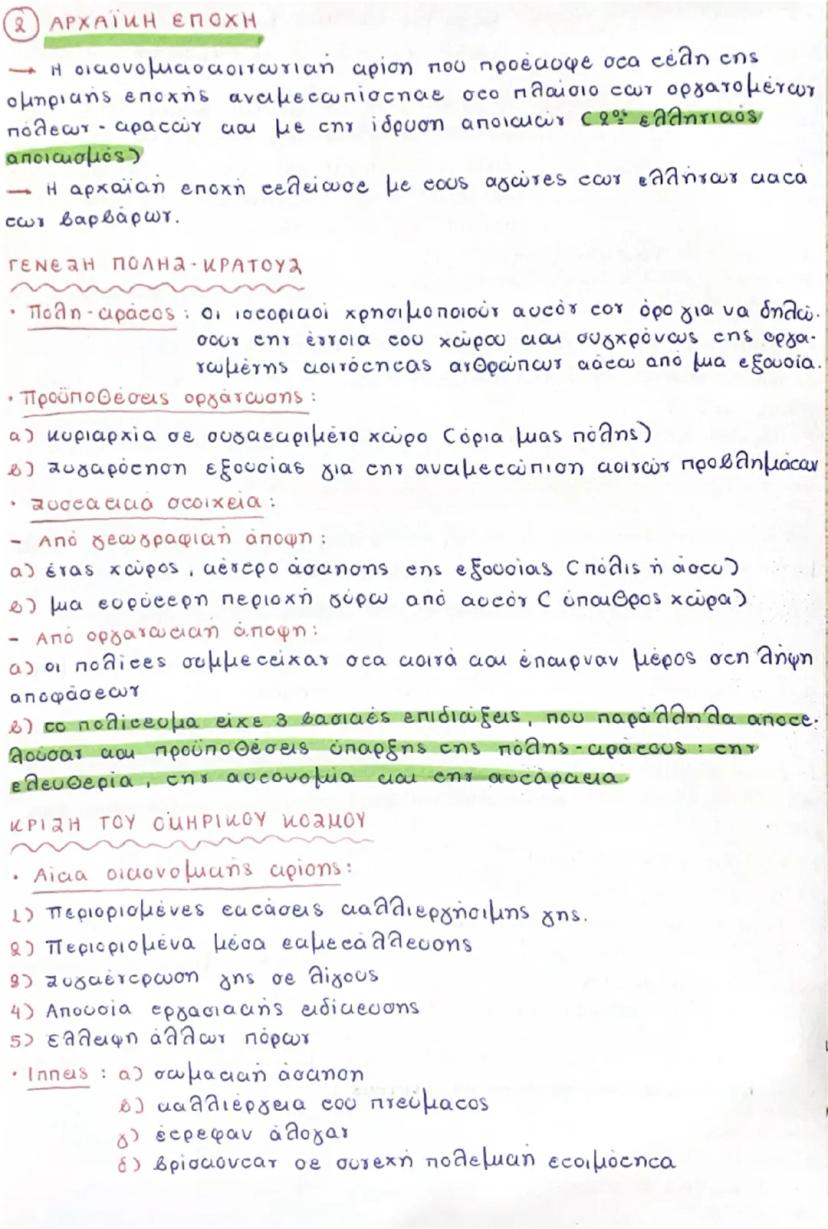 ② ΑΡΧΑΪΚΗ ΕΠΟΧΗ
→ Η οικονομικοκοινωνική κρίση που προέκυψε στα τέλη της
ομηρικής εποχής αντιμετωπίστηκε στο πλαίσιο των οργανομένων
πόλεων-κρατών και με την ίδρυση αποικιών (2ος ελληνικός
αποικισμός)
→ Η αρχαϊκή εποχή τελείωσε με τους αγώνες των ελλήνων κατά
των βαρβάρων.
ΓΕΝΕΣΗ ΠΟΛΗΣ-ΚΡΑΤΟΥΣ
· Πόλη-κράτος: Οι ιστορικοί χρησιμοποιούν αυτόν τον όρο για να δηλώ-
σουν την έννοια του χώρου και συγχρόνως της οργα-
νωμένης κοινότητας ανθρώπων κάτω από μια εξουσία.
· Προϋποθέσεις οργάνωσης:
α) κυριαρχία σε συγκεκριμένο χώρο (όρια μιας πόλης)
β) Συγκρότηση εξουσίας για την αντιμετώπιση κοινών προβλημάτων
· Συστατικά στοιχεία:
- Από γεωγραφική άποψη:
α) ένας χώρος, κέντρο άσκησης της εξουσίας (πόλις ή άστυ)
β) μια ευρύτερη περιοχή γύρω από αυτόν (ύπαιθρος χώρα)
- Από οργανωτική άποψη:
α) οι πολίτες συμμετείχαν στα κοινά και έπαιρναν μέρος στη λήψη
αποφάσεων
β) το πολίτευμα είχε 3 βασικές επιδιώξεις, που παράλληλα αποτε-
λούσαν και προϋποθέσεις ύπαρξης της πόλης-κράτους: την
ελευθερία, την αυτονομία και την αυτάρκεια
ΚΡΙΣΗ ΤΟΥ ΟΜΗΡΙΚΟΥ ΚΟΣΜΟΥ
· Αίτια οικονομικής κρίσης:
1) Περιορισμένες εκτάσεις καλλιεργήσιμης γης.
2) Περιορισμένα μέσα εκμετάλλευσης
3) Συγκέντρωση γης σε λίγους
4) Απουσία εργασιακής ειδίκευσης
5) Έλλειψη άλλων πόρων
· Ιππείς: α) σωματική άσκηση
β) καλλιέργεια του πνεύματος
γ) έτρεφαν άλογαν
δ) βρίσκονταν σε συνεχή πολεμική ετοιμότητα